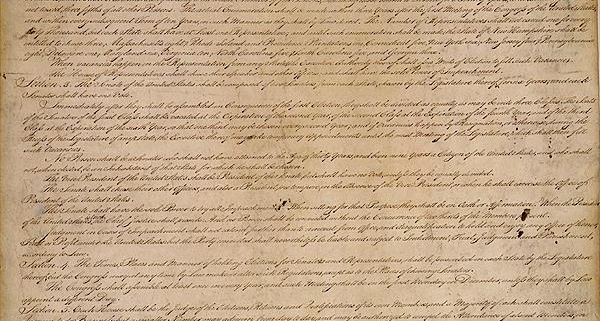 not taxed, three fifths of all other Persons. The actual Enumeration shall be made within three Years after the first Meeting of the Congress of the United States,
and within every subsequent Term of ten Years, in such Manner as they shall by Law direct. The Number of Representatives shall not exceed one for every
thirty Thousand, but each State shall have at Least one Representative; and until such enumeration shall be made, the State of New Hampshire shall be
entitled to chuse three, Massachusetts eight, Rhode-Island and Providence Plantations one, Connecticut five, New-York six, New Jersey four, Pennsylvania
eight, Delaware one, Maryland six, Virginia ten, North Carolina five, South Carolina five, and Georgia three.
When vacancies happen in the Representation from any State, the Executive Authority thereof shall issue Writs of Election to fill such Vacancies.
The House of Representatives shall chuse their Speaker and other Officers; and shall have the sole Power of Impeachment.
Section. 3. The Senate of the United States shall be composed of two Senators from each State, chosen by the Legislature thereof, for six Years; and each
Senator shall have one Vote.
Immediately after they shall be assembled in Consequence of the first Election, they shall be divided as equally as may be into three Classes. The Seats
of the Senators of the first Class shall be vacated at the Expiration of the second Year, of the second Class at the Expiration of the fourth Year, and of the third
Class at the Expiration of the sixth Year, so that one third may be chosen every second Year; and if Vacancies happen by Resignation, or otherwise, during the
Recess of the Legislature of any State, the Executive thereof may make temporary Appointments until the next Meeting of the Legislature, which shall then fill
such Vacancies.
No Person shall be a Senator who shall not have attained to the Age of thirty Years, and been nine Years a Citizen of the United States, and who shall
not, when elected, be an Inhabitant of that State for which he shall be chosen.
The Vice President of the United States shall be President of the Senate, but shall have no Vote, unless they be equally divided.
The Senate shall chuse their other Officers, and also a President pro tempore, in the Absence of the Vice President, or when he shall exercise the Office of
President of the United States.
The Senate shall have the sole Power to try all Impeachments. When sitting for that Purpose, they shall be on Oath or Affirmation. When the President
of the United States is tried, the Chief Justice shall preside: And no Person shall be convicted without the Concurrence of two thirds of the Members present.
Judgment in Cases of Impeachment shall not extend further than to removal from Office, and disqualification to hold and enjoy any Office of honor,
Trust or Profit under the United States: but the Party convicted shall nevertheless be liable and subject to Indictment, Trial, Judgment and Punishment,
according to Law.
Section. 4. The Times, Places and Manner of holding Elections for Senators and Representatives, shall be prescribed in each State by the Legislature
thereof; but the Congress may at any time by Law make or alter such Regulations, except as to the Places of chusing Senators.
The Congress shall assemble at least once in every Year, and such Meeting shall be on the first Monday in December, unless they shall by Law
appoint a different Day.
Section. 5. Each House shall be the Judge of the Elections, Returns and Qualifications of its own Members, and a Majority of each shall constitute a
Quorum to do Business; but a smaller Number may adjourn from day to day, and may be authorized to compel the Attendance of absent Members, in